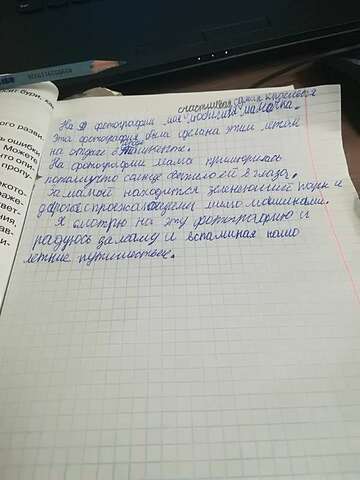 осит бури, ка
счастливая самая красивая
На фотографии моя любимая мамочка.
Эта фотография была сделана этим летом
на отдыхе в
На фотографии мама прищурилась
потамушто солнце светило ей в глаза.
За мамой находится зиленеющий парк и
дарога с проезжающеми мимо машинами.
Я смотрю на эту фотографию и
радуюсь за маму и вспаминая нашо
летние путишествие.
ого разви.
ь ошибки
Можете
что опи.
пропу.
акого-
аже-
вет-
ния,
ав-
и-